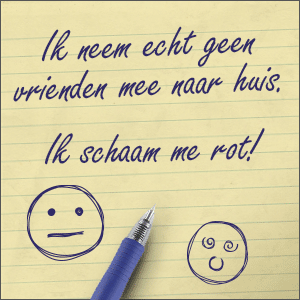 Ik neem echt geen
vrienden mee naar huis.
Ik schaam me rot!